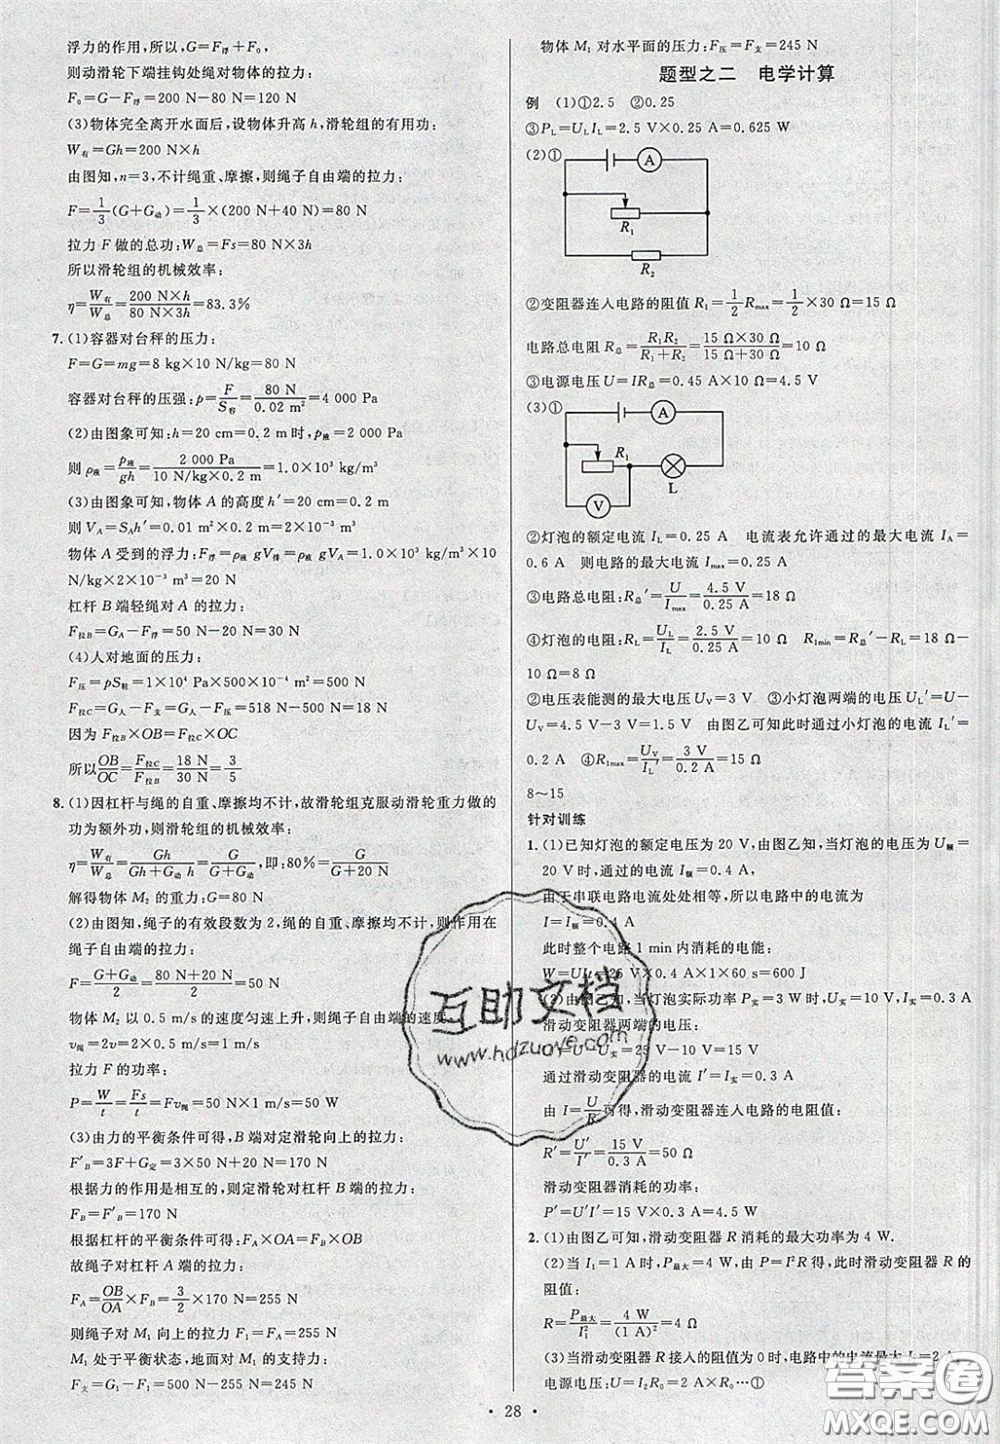 浮力的作用,所以,G=F浮+F0,
则动滑轮下端挂钩处绳对物体的拉力:
F0=G-F浮=200 N-80 N=120 N
(3)物体完全离开水面后,设物体升高 h,滑轮组的有用功:
W有=Gh=200 N×h
由图知,n=3,不计绳重、摩擦,则绳子自由端的拉力:
F=1/3(G+G动)=1/3×(200 N+40 N)=80 N
拉力 F 做的总功:W总=Fs=80 N×3h
所以滑轮组的机械效率:
η=W有/W总=200 N×h/80 N×3h=83.3%
7. (1)容器对台秤的压力:
F=G=mg=8 kg×10 N/kg=80 N
容器对台秤的压强:p=F/S容=80 N/0.02 m²=4 000 Pa
(2)由图象可知:h=20 cm=0.2 m 时,p液=2 000 Pa
则 ρ液=p液/gh=2 000 Pa/10 N/kg×0.2 m=1.0×10³ kg/m³
(3)由图象可知,物体 A 的高度 h′=20 cm=0.2 m
则 VA=SAh′=0.01 m²×0.2 m=2×10⁻³ m³
物体 A 受到的浮力:F浮=ρ液 gV排=ρ液 gVA=1.0×10³ kg/m³×10
N/kg×2×10⁻³ m³=20 N
杠杆 B 端轻绳对 A 的拉力:
F拉B=GA-F浮=50 N-20 N=30 N
(4)人对地面的压力:
F压=pS鞋=1×10⁴ Pa×500×10⁻⁴ m²=500 N
F拉C=G人-F支=G人-F压=518 N-500 N=18 N
因为 F拉B×OB=F拉C×OC
所以OB/OC=F拉C/F拉B=18 N/30 N=3/5
8. (1)因杠杆与绳的自重、摩擦均不计,故滑轮组克服动滑轮重力做的
功为额外功,则滑轮组的机械效率:
η=W有/W总=Gh/Gh+G动 h=G/G+G动,即:80%=G/G+20 N
解得物体 M1 的重力:G=80 N
(2)由图知,绳子的有效段数为2,绳的自重、摩擦均不计,则作用在
绳子自由端的拉力:
F=G+G动/2=80 N+20 N/2=50 N
物体 M2 以 0.5 m/s 的速度匀速上升,则绳子自由端的速度:
v绳=2v=2×0.5 m/s=1 m/s
拉力 F 的功率:
P=W/t=Fs/t=Fv绳=50 N×1 m/s=50 W
(3)由力的平衡条件可得,B 端对定滑轮向上的拉力:
F′B=3F+G定=3×50 N+20 N=170 N
根据力的作用是相互的,则定滑轮对杠杆 B 端的拉力:
FB=F′B=170 N
根据杠杆的平衡条件可得:FA×OA=FB×OB
故绳子对杠杆 A 端的拉力:
FA=OB/OA×FB=3/2×170 N=255 N
则绳子对 M1 向上的拉力 F′A=FA=255 N
M1 处于平衡状态,地面对 M1 的支持力:
F支=G1-F′A=500 N-255 N=245 N
物体 M1 对水平面的压力:F压=F支=245 N
题型之二 电学计算
例 (1)①2.5 ②0.25
③PL=ULIL=2.5 V×0.25 A=0.625 W
(2)①
A
R1
R2
②变阻器连入电路的阻值 R1=1/2Rmax=1/2×30 Ω=15 Ω
电路总电阻 R总=R1R2/R1+R2=15 Ω×30 Ω/15 Ω+30 Ω=10 Ω
③电源电压 U=IR总=0.45 A×10 Ω=4.5 V
(3)①
A
R1
L
V
②灯泡的额定电流 IL=0.25 A 电流表允许通过的最大电流 IA=
0.6 A 则电路的最大电流 Imax=0.25 A
③电路总电阻:R总′=U/Imax=4.5 V/0.25 A=18 Ω
④灯泡的电阻:RL=UL/IL=2.5 V/0.25 A=10 Ω R1min=R总′-RL=18 Ω-
10 Ω=8 Ω
②电压表能测的最大电压 UV=3 V ③小灯泡两端的电压 UL′=U-
UV=4.5 V-3 V=1.5 V 由图乙可知此时通过小灯泡的电流 IL′=
0.2 A ④R1max=UV/IL′=3 V/0.2 A=15 Ω
8~15
针对训练
1. (1)已知灯泡的额定电压为 20 V,由图乙知,当灯泡的电压 U额=
20 V时,通过的电流 I额=0.4 A,
由于串联电路电流处处相等,所以电路中的电流为
I=I额=0.4 A
此时整个电路 1 min 内消耗的电能:
W=UIt=25 V×0.4 A×1×60 s=600 J
(2)由图乙知,当灯泡实际功率 P实=3 W 时,U实=10 V,I实=0.3 A
滑动变阻器两端的电压:
U′=U-U实=25 V-10 V=15 V
通过滑动变阻器的电流 I′=I实=0.3 A
由 I=U/R可得,滑动变阻器连入电路的阻值:
R′=U′/I′=15 V/0.3 A=50 Ω
滑动变阻器消耗的功率:
P′=U′I′=15 V×0.3 A=4.5 W
2. (1)由图乙可知,滑动变阻器 R 消耗的最大功率为 4 W.
(2)当 I1=1 A 时,P最大=4 W,由 P=I²R 可得,滑动变阻器 R 的
阻值:
R=P最大/I1²=4 W/(1 A)²=4 Ω
(3)当滑动变阻器 R 接入的阻值为0时,电路中的电流最大 I2=2 A,
电源电压:U=I2R0=2 A×R0…①
互助文档
www.hdzuoye.com
答案圈
MXQE.COM
• 28 •